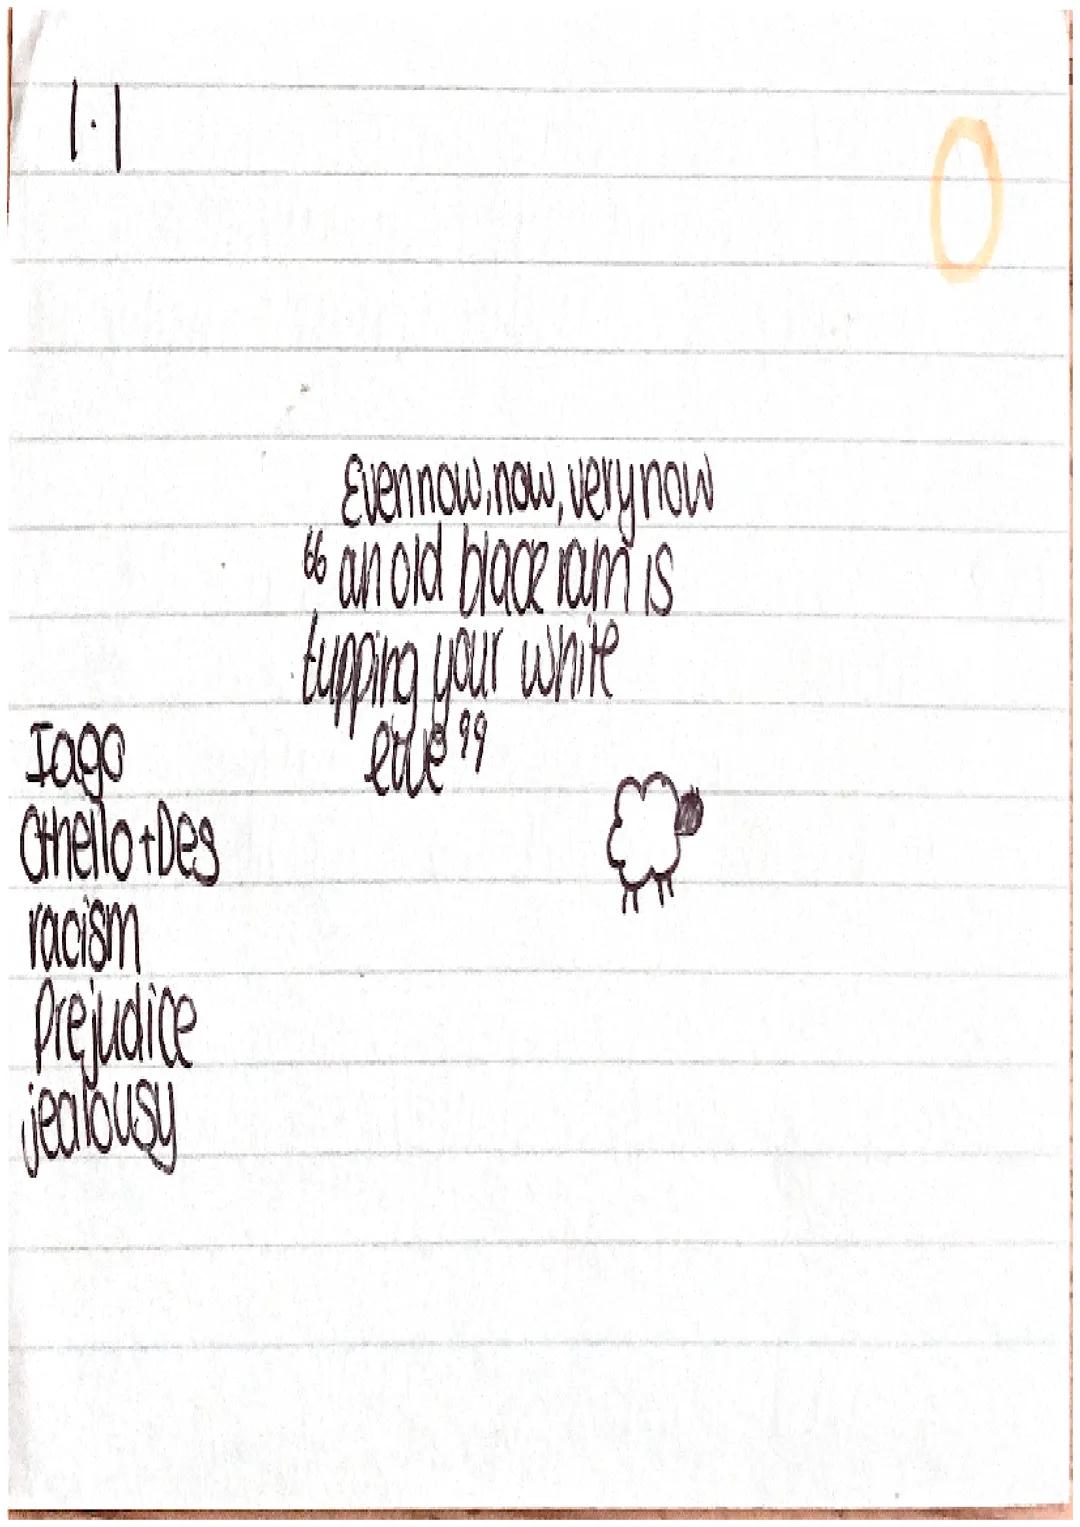 1.1
Even now, now, very now
“ an old black ram is
tupping your white
ewe ”
Iago
Othello + Des
racism
Prejudice
jealousy